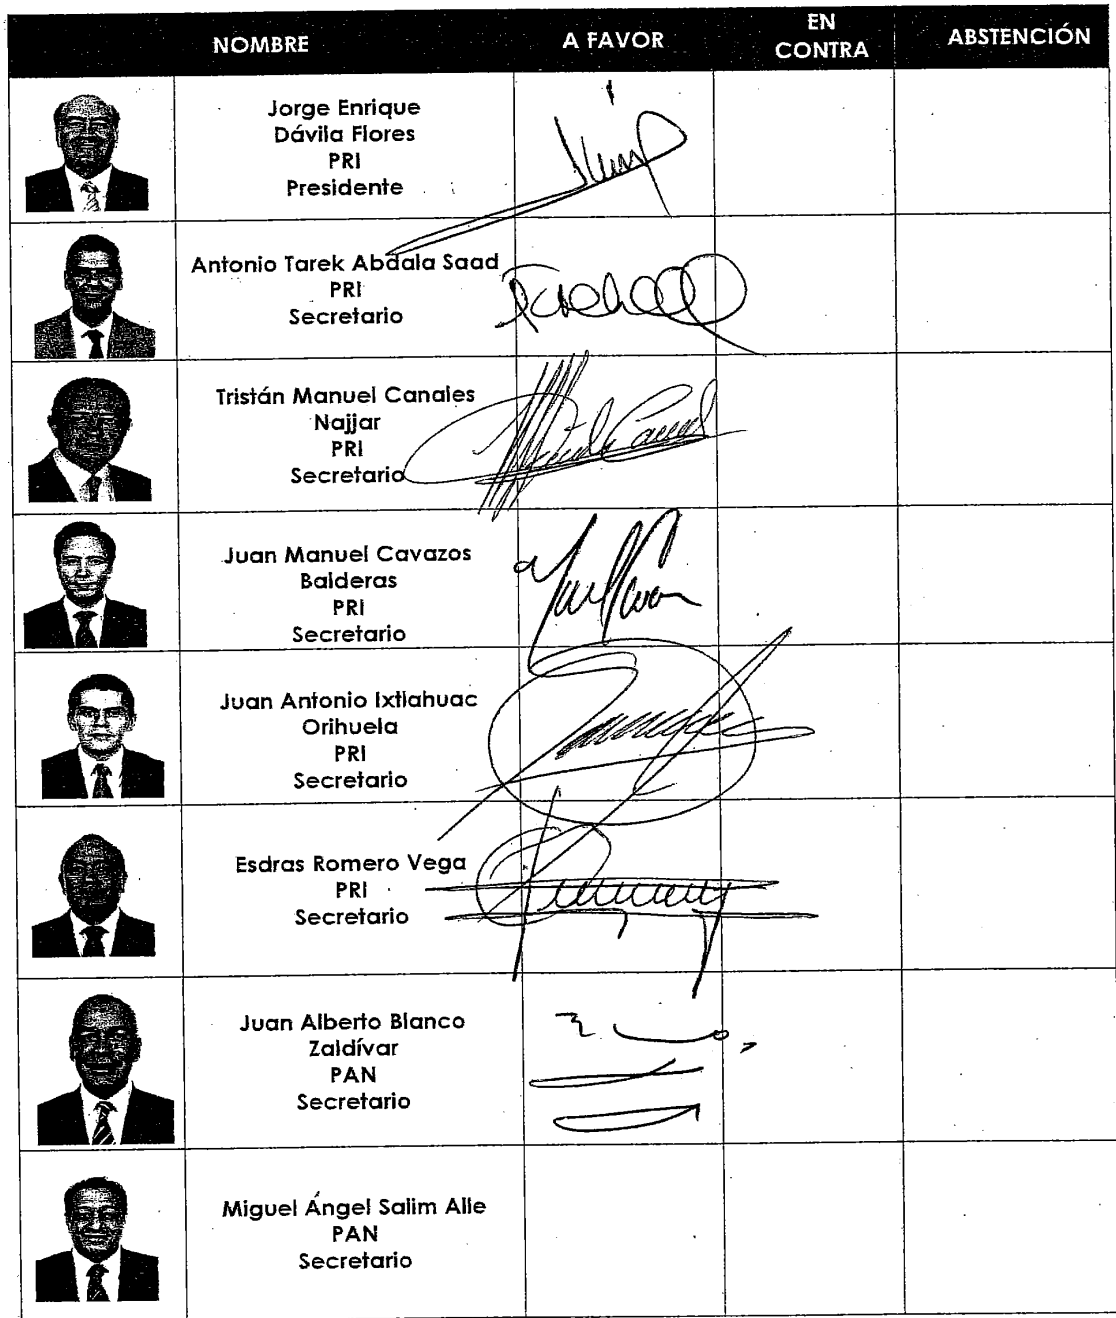 NOMBRE
A FAVOR
EN
CONTRA
ABSTENCIÓN
Jorge Enrique
Dávila Flores
PRI
Presidente
Antonio Tarek Abdala Saad
PRI
Secretario
Tristán Manuel Canales
Najjar
PRI
Secretario
Juan Manuel Cavazos
Balderas
PRI
Secretario
Juan Antonio Ixtlahuac
Orihuela
PRI
Secretario
Esdras Romero Vega
PRI
Secretario
Juan Alberto Blanco
Zaldívar
PAN
Secretario
Miguel Ángel Salim Alle
PAN
Secretario